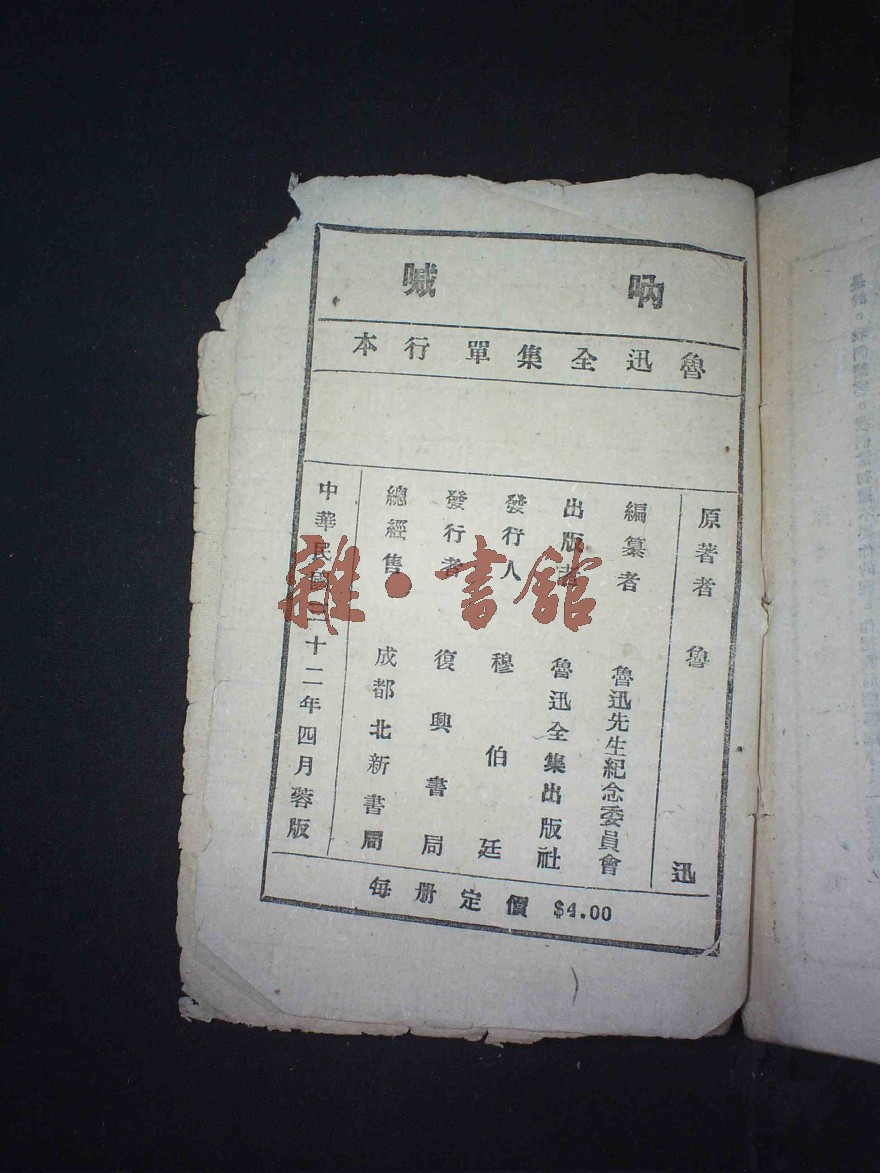 吶喊
魯迅全集單行本
原著者 魯迅
編纂者 魯迅先生紀念委員會
出版者 魯迅全集出版社
發行人 穆伯廷
發行者 復興書局
總經售 成都北新書局
中華民國三十二年四月蓉版
每册定價 $4.00
雜·書館